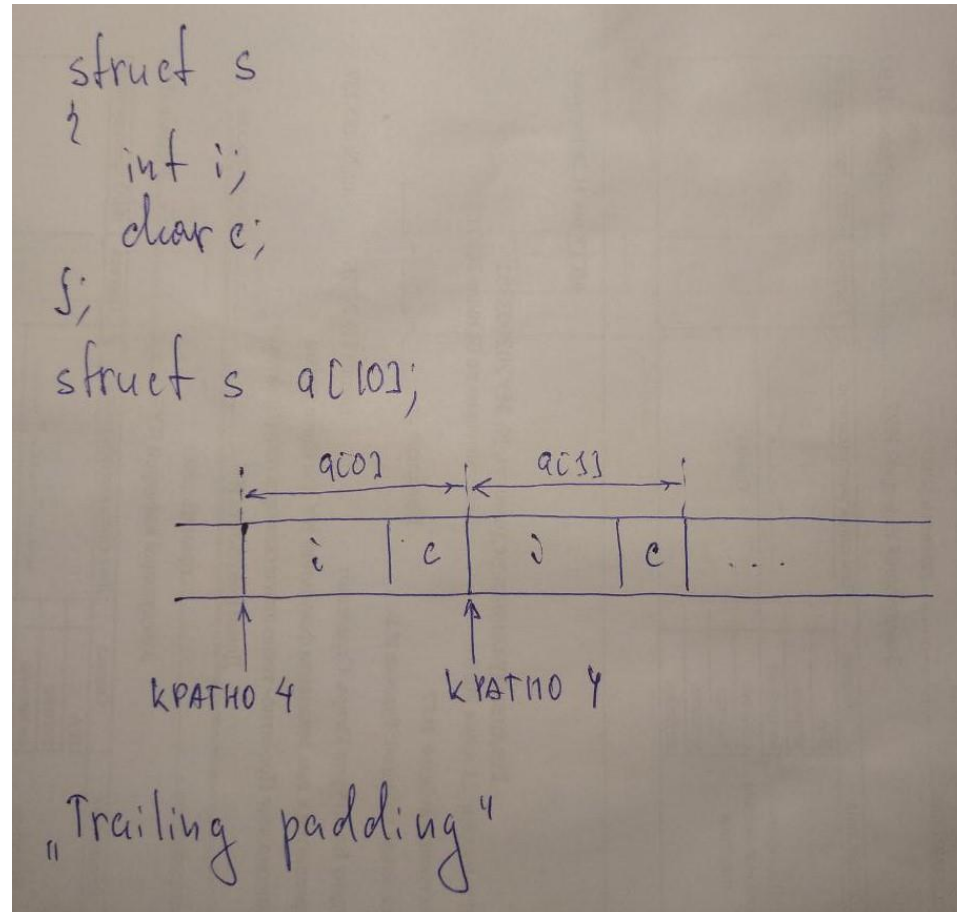 struct s
{
int i;
char c;
};
struct s a[10];
a[0] a[1]
i c i c ....
КРАТНО 4 КРАТНО 4
„Trailing padding"